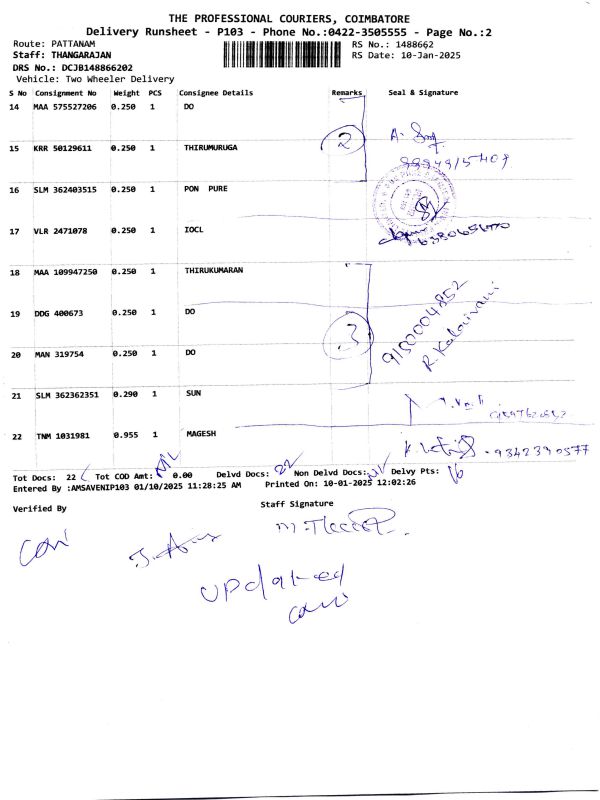 THE PROFESSIONAL COURIERS, COIMBATORE
Delivery Runsheet - P103 - Phone No.:0422-3505555 - Page No.:2
Route: PATTANAM RS No.: 1488662
Staff: THANGARAJAN RS Date: 10-Jan-2025
DRS No.: DCJB148866202
Vehicle: Two Wheeler Delivery
S No Consignment No Weight PCS Consignee Details Remarks Seal & Signature
14 MAA 575527206 0.250 1 DO
15 KRR 50129611 0.250 1 THIRUMURUGA 2
16 SLM 362403515 0.250 1 PON PURE
17 VLR 2471078 0.250 1 IOCL
18 MAA 109947250 0.250 1 THIRUKUMARAN
19 DDG 400673 0.250 1 DO 9150004852
20 MAN 319754 0.250 1 DO 3 R. Kalaivani
21 SLM 362362351 0.290 1 SUN
22 TNM 1031981 0.955 1 MAGESH 9342390577
Tot Docs: 22 Tot COD Amt: 0.00 Nil Delvd Docs: 22 Non Delvd Docs: Nil Delvy Pts: 16
Entered By :AMSAVENIP103 01/10/2025 11:28:25 AM Printed On: 10-01-2025 12:02:26
Verified By Staff Signature
updated